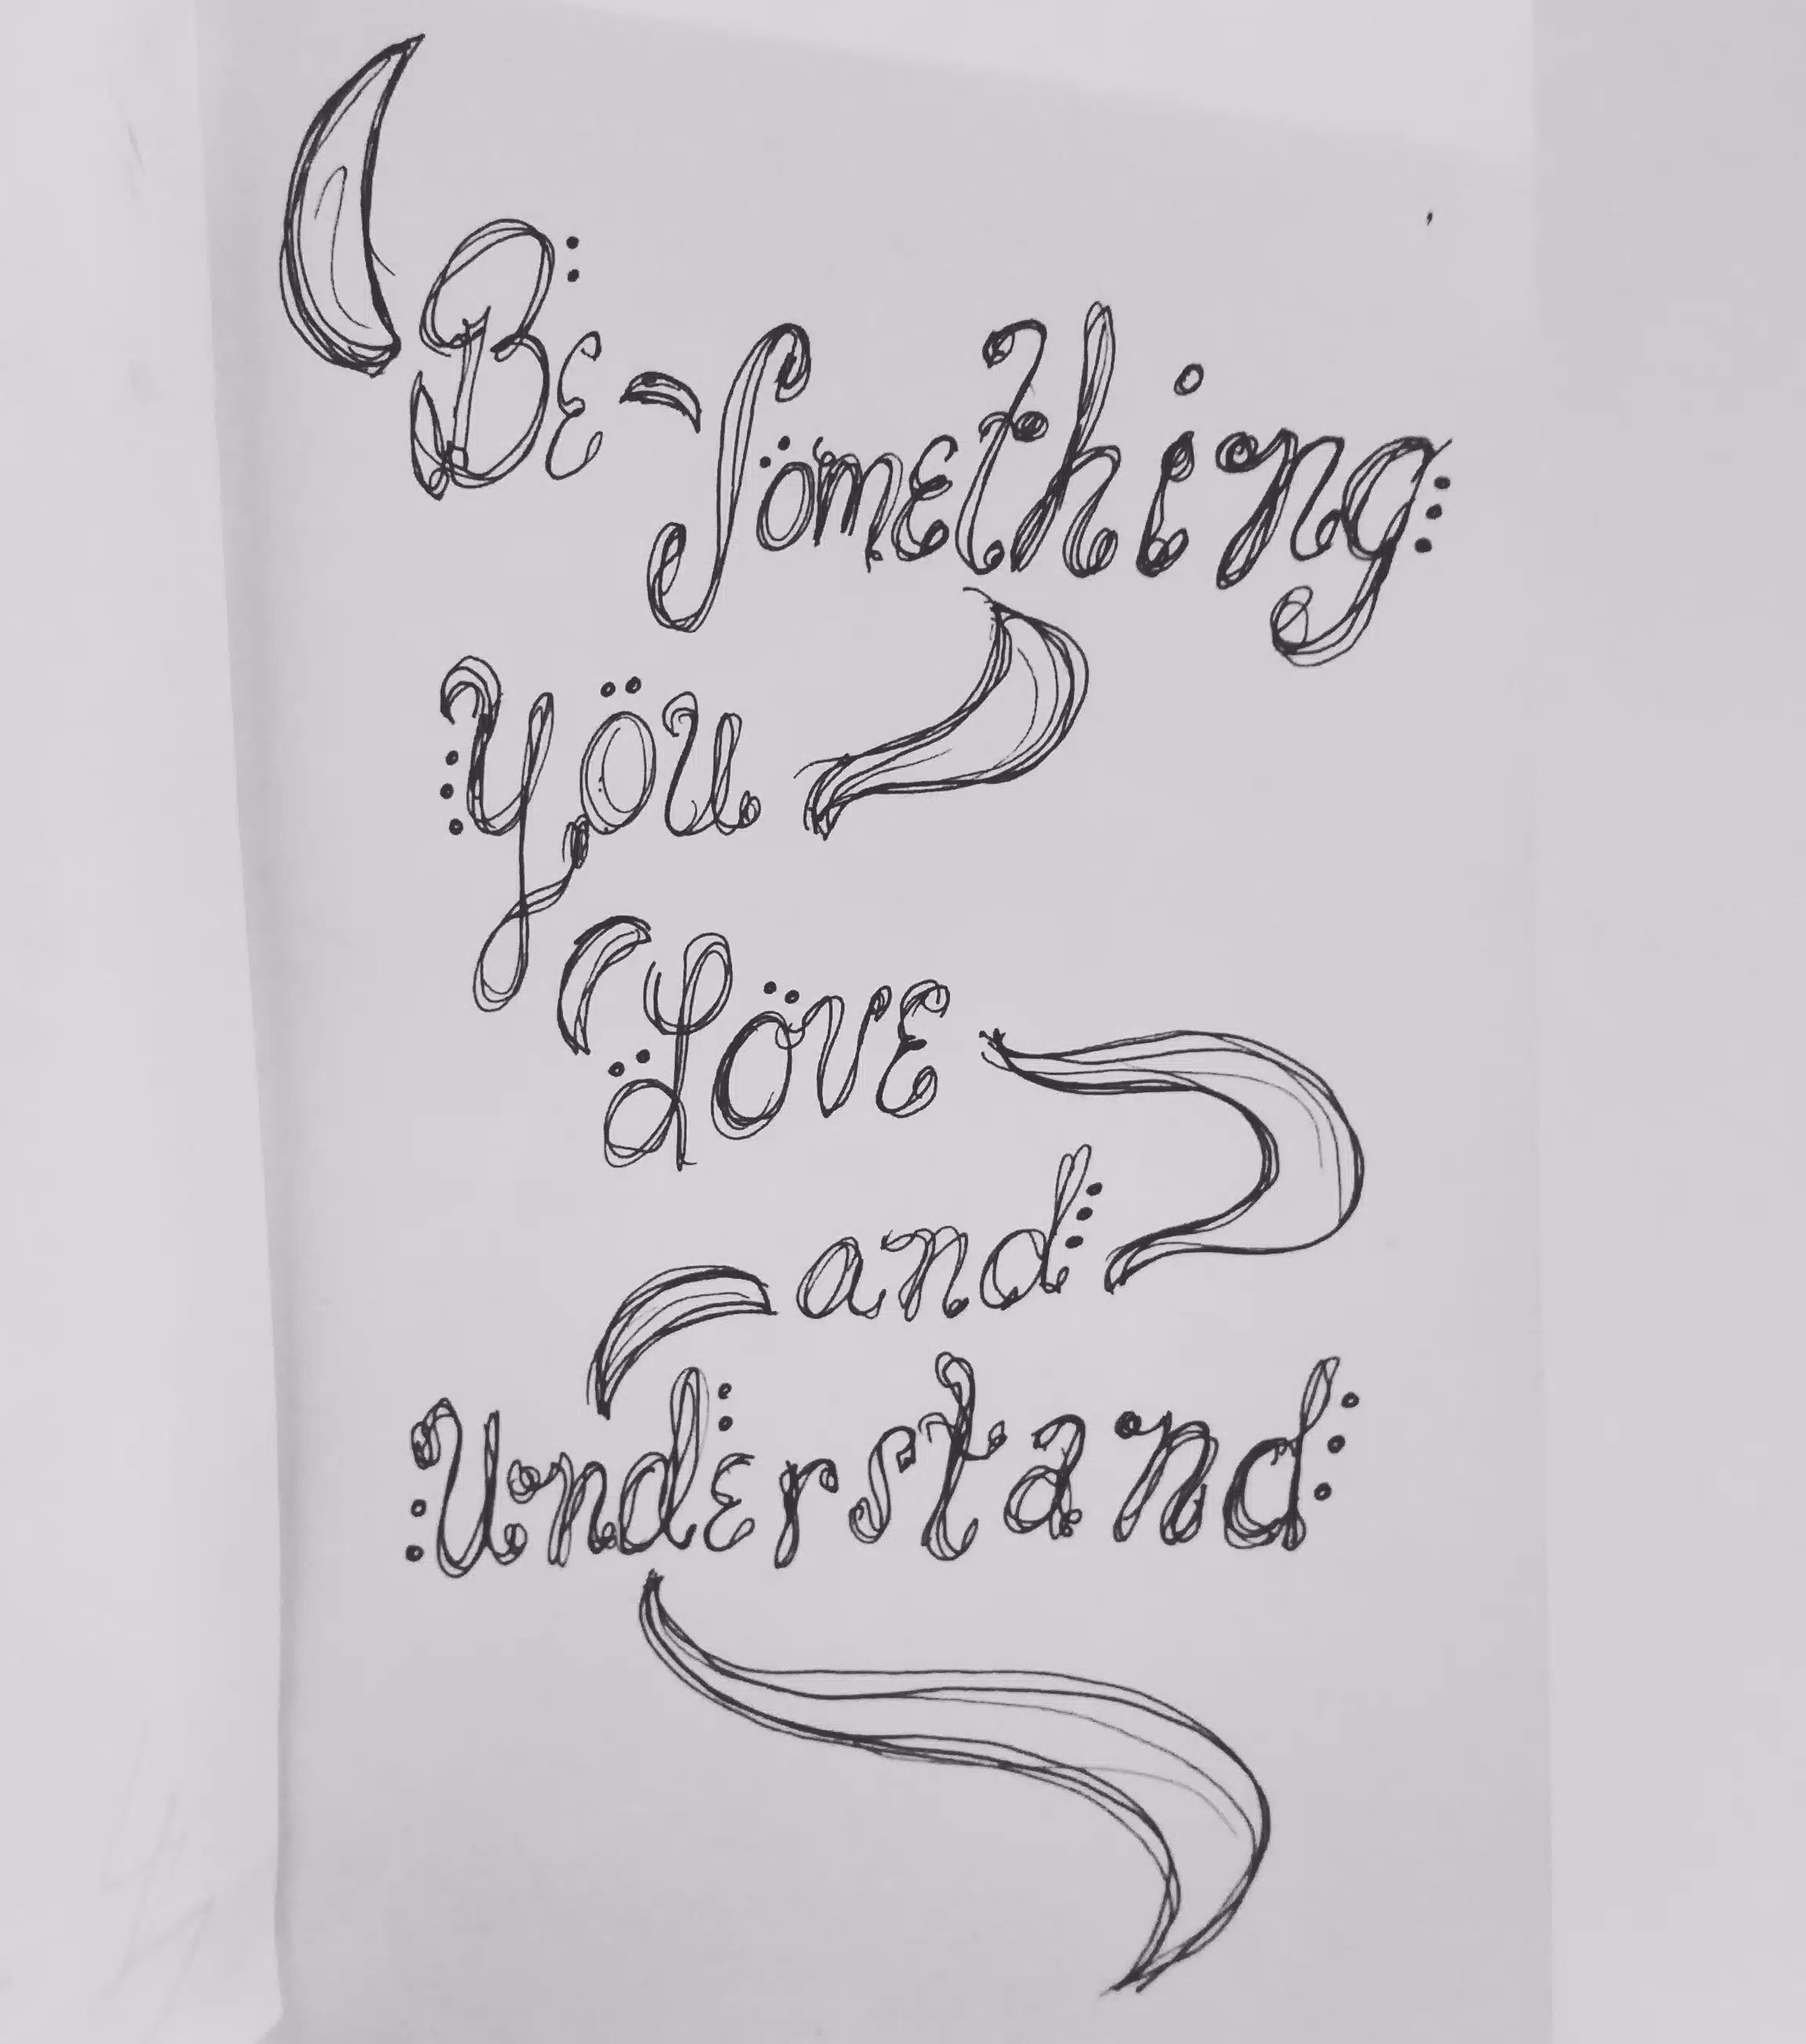 Be Something
You
Love
and
Understand